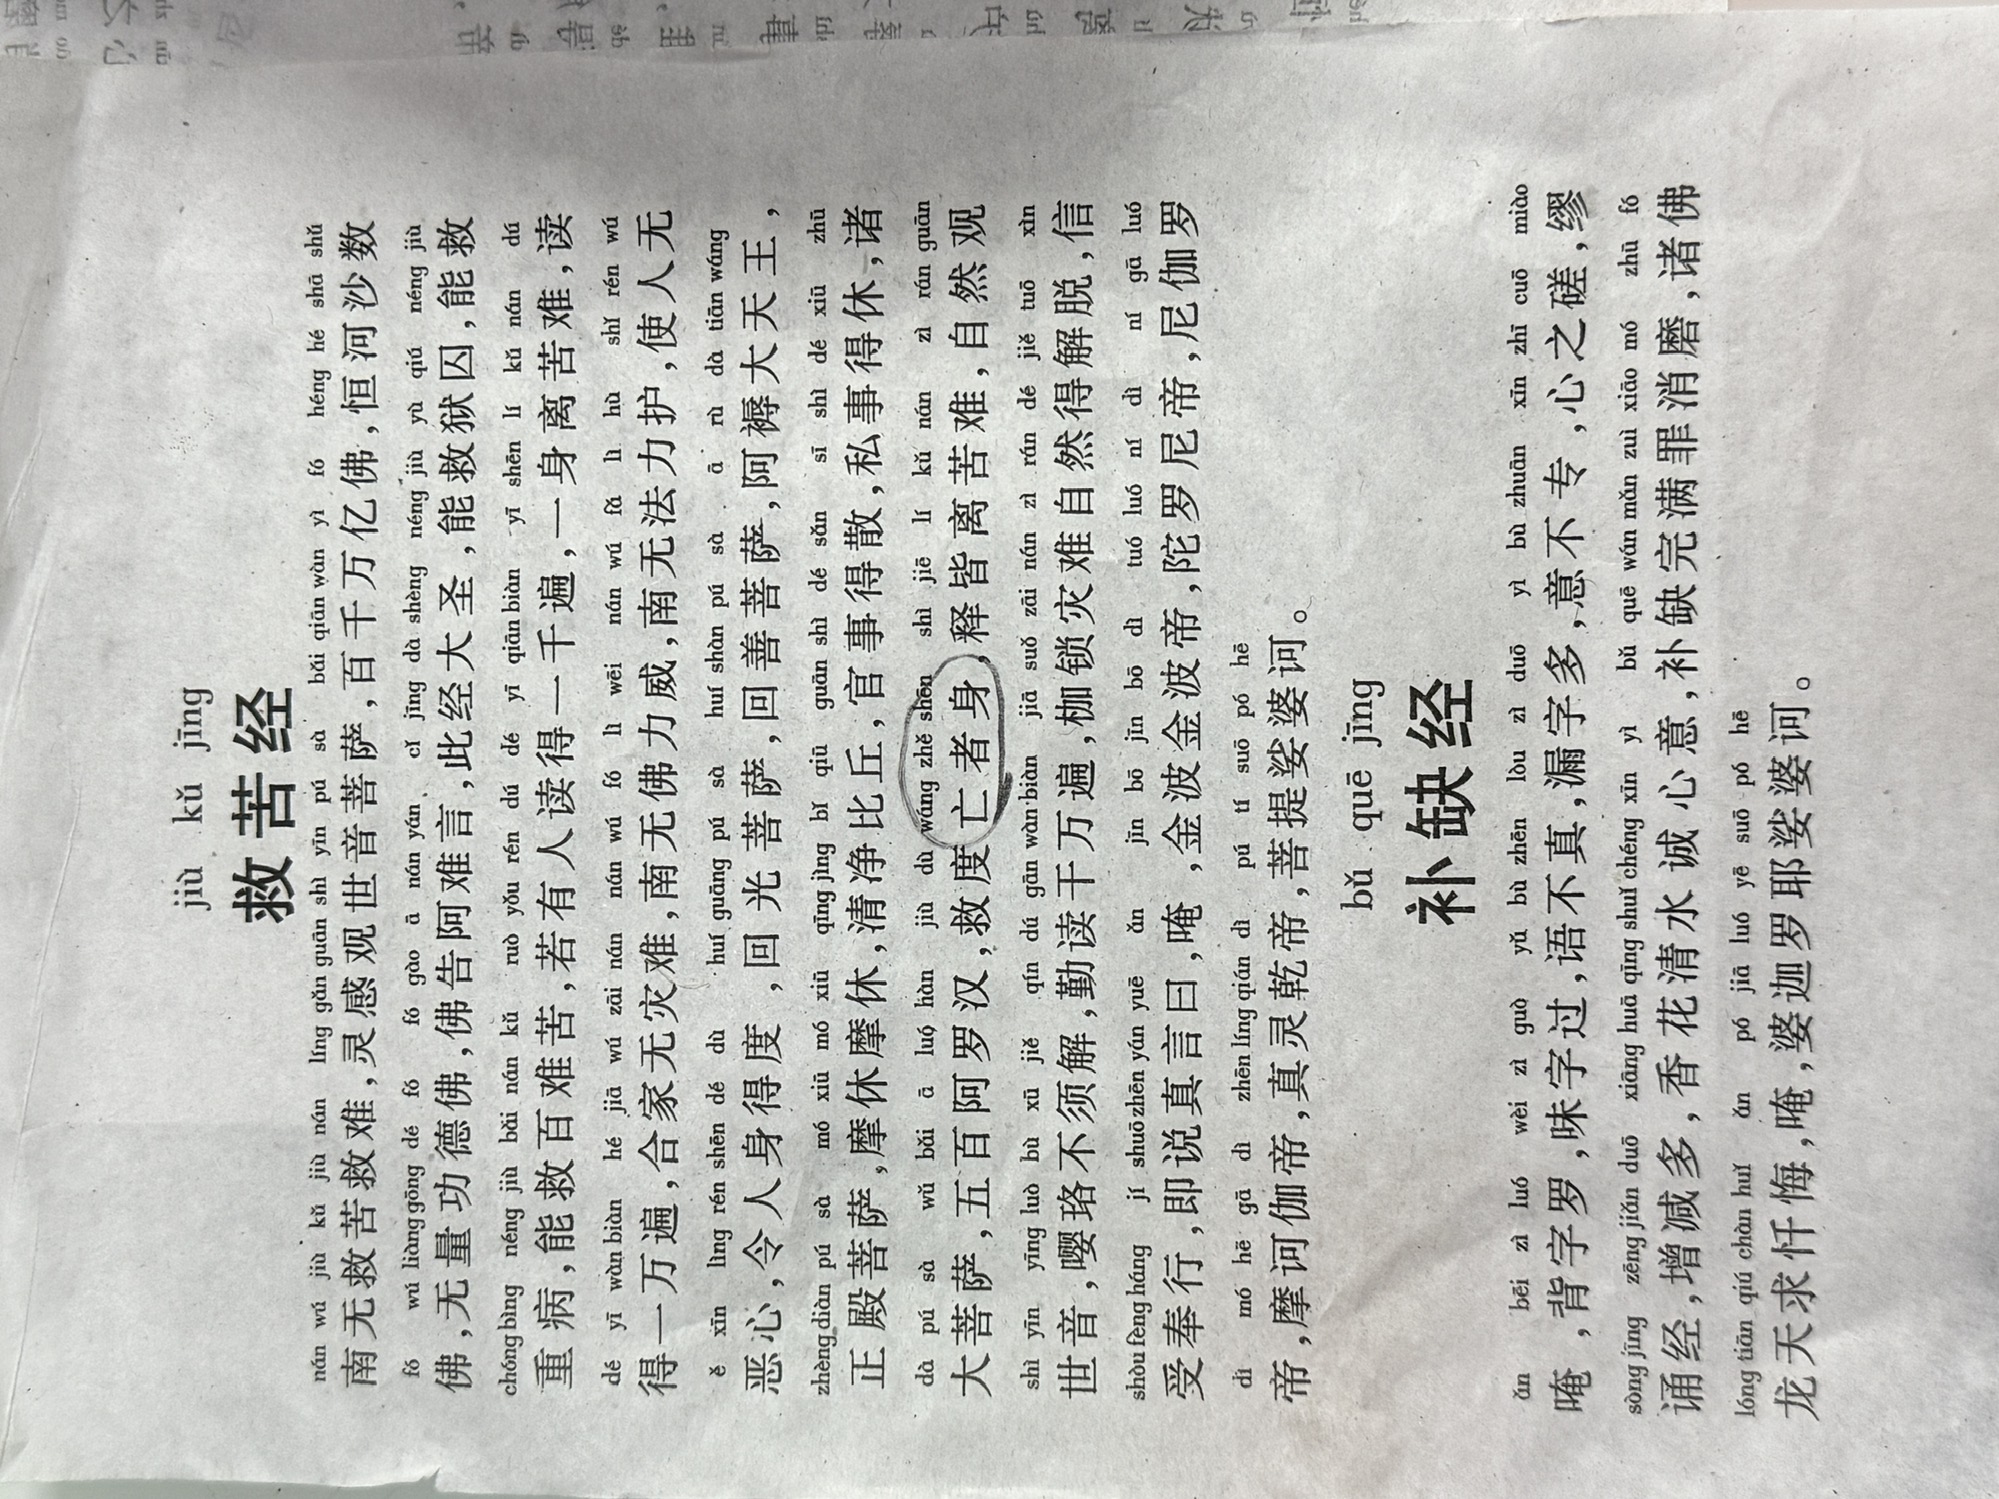 jiù kǔ jīng
救苦经
nán wú jiù kǔ jiù nán líng gǎn guān shì yīn pú sà bǎi qiān wàn yì fó héng hé shā shǔ
南无救苦救难,灵感观世音菩萨,百千万亿佛,恒河沙数
fó wú liàng gōng dé fó fó gào ā nán yán cǐ jīng dà shèng néng jiù yù qiú néng jiù
佛,无量功德佛,佛告阿难言,此经大圣,能救狱囚,能救
chóng bìng néng jiù bǎi nán kǔ ruò yǒu rén dú dé yī qiān biàn yī shēn lí kǔ nán dú
重病,能救百难苦,若有人读得一千遍,一身离苦难,读
dé yī wàn biàn hé jiā wú zāi nán nán wú fó lì wēi nán wú fǎ lì hù shǐ rén wú
得一万遍,合家无灾难,南无佛力威,南无法力护,使人无
ě xīn lìng rén shēn dé dù huí guāng pú sà huí shàn pú sà ā rù dà tiān wáng
恶心,令人身得度,回光菩萨,回善菩萨,阿褥大天王,
zhèng diàn pú sà mó xiū mó xiū qīng jìng bǐ qiū guān shì dé sǎn sī shì dé xiū zhū
正殿菩萨,摩休摩休,清净比丘,官事得散,私事得休,诸
dà pú sà wǔ bǎi ā luó hàn jiù dù wáng zhě shēn shì jiē lí kǔ nán zì rán guān
大菩萨,五百阿罗汉,救度亡者身,释皆离苦难,自然观
shì yīn yīng luò bù xū jiě qín dú gān wàn biàn jiā suǒ zāi nán zì rán dé jiě tuō xìn
世音,嘤珞不须解,勤读干万遍,枷锁灾难自然得解脱,信
shòu fèng háng jí shuō zhēn yán yuē ǎn jīn bō jīn bō dì tuó luó ní dì ní gā luó
受奉行,即说真言曰,唵,金波金波帝,陀罗尼帝,尼伽罗
dì mó hē gā dì zhēn líng qián dì pú tí suō pó hē
帝,摩诃伽帝,真灵乾帝,菩提娑婆诃。
bǔ quē jīng
补缺经
ǎn bēi zì luó wèi zì guò yǔ bù zhēn lòu zì duō yì bù zhuān xīn zhī cuō miào
唵,背字罗,味字过,语不真,漏字多,意不专,心之磋,缪
sòng jīng zēng jiǎn duō xiāng huā qīng shuǐ chéng xīn yì bǔ quē wán mǎn zuì xiāo mó zhū fó
诵经,增减多,香花清水诚心意,补缺完满罪消磨,诸佛
lóng tiān qiú chàn huǐ ǎn pó jiā luó yē suō pó hē
龙天求忏悔,唵,婆迦罗耶娑婆诃。